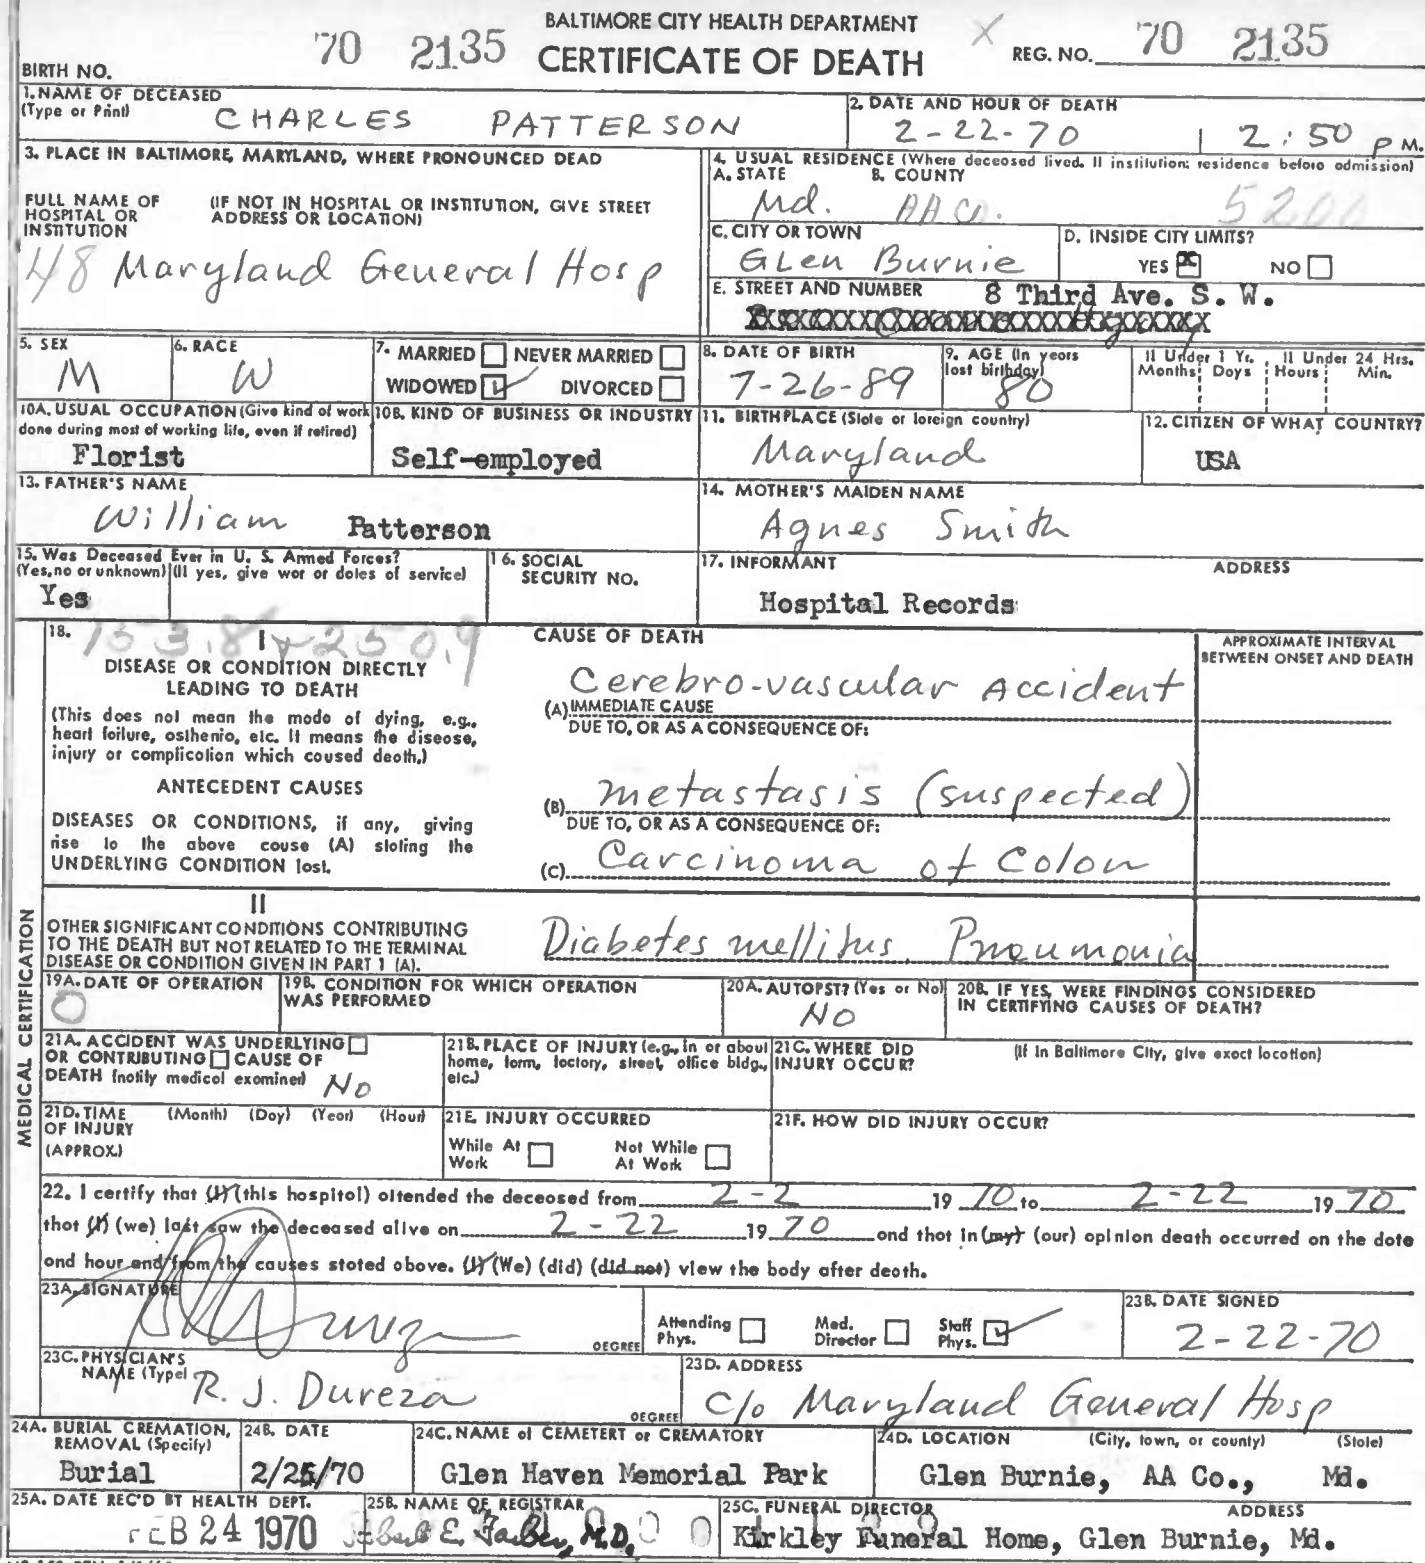 BALTIMORE CITY HEALTH DEPARTMENT
CERTIFICATE OF DEATH
BIRTH NO. 70 2135
X
REG. NO. 70 2135
1. NAME OF DECEASED
(Type or Print) CHARLES PATTERSON
2. DATE AND HOUR OF DEATH
2-22-70 2:50 P M.
3. PLACE IN BALTIMORE, MARYLAND, WHERE PRONOUNCED DEAD
FULL NAME OF HOSPITAL OR INSTITUTION
(IF NOT IN HOSPITAL OR INSTITUTION, GIVE STREET ADDRESS OR LOCATION)
48 Maryland General Hosp
4. USUAL RESIDENCE (Where deceased lived. If institution: residence before admission)
A. STATE B. COUNTY
Md. AA Co. 5200
C. CITY OR TOWN
Glen Burnie
D. INSIDE CITY LIMITS?
YES X NO
E. STREET AND NUMBER 8 Third Ave. S. W.
5. SEX
M
6. RACE
W
7. MARRIED NEVER MARRIED
WIDOWED ✓ DIVORCED
8. DATE OF BIRTH
7-26-89
9. AGE (In years last birthday)
80
If Under 1 Yr. If Under 24 Hrs.
Months Days Hours Min.
10A. USUAL OCCUPATION (Give kind of work
done during most of working life, even if retired)
Florist
10B. KIND OF BUSINESS OR INDUSTRY
Self-employed
11. BIRTHPLACE (State or foreign country)
Maryland
12. CITIZEN OF WHAT COUNTRY?
USA
13. FATHER'S NAME
William Patterson
14. MOTHER'S MAIDEN NAME
Agnes Smith
15. Was Deceased Ever in U. S. Armed Forces?
(Yes, no or unknown) (If yes, give war or dates of service)
Yes
16. SOCIAL SECURITY NO.
17. INFORMANT ADDRESS
Hospital Records
MEDICAL CERTIFICATION
18. 153.8 + 250.9
I
DISEASE OR CONDITION DIRECTLY
LEADING TO DEATH
(This does not mean the mode of dying, e.g.,
heart failure, asthenia, etc. It means the disease,
injury or complication which caused death.)
ANTECEDENT CAUSES
DISEASES OR CONDITIONS, if any, giving
rise to the above cause (A) stating the
UNDERLYING CONDITION last.
CAUSE OF DEATH
APPROXIMATE INTERVAL
BETWEEN ONSET AND DEATH
Cerebro-vascular Accident
(A) IMMEDIATE CAUSE
DUE TO, OR AS A CONSEQUENCE OF:
(B) metastasis (suspected)
DUE TO, OR AS A CONSEQUENCE OF:
(C) Carcinoma of Colon
II
OTHER SIGNIFICANT CONDITIONS CONTRIBUTING
TO THE DEATH BUT NOT RELATED TO THE TERMINAL
DISEASE OR CONDITION GIVEN IN PART 1 (A).
Diabetes mellitus, Pneumonia
19A. DATE OF OPERATION
0
19B. CONDITION FOR WHICH OPERATION
WAS PERFORMED
20A. AUTOPSY? (Yes or No)
NO
20B. IF YES, WERE FINDINGS CONSIDERED
IN CERTIFYING CAUSES OF DEATH?
21A. ACCIDENT WAS UNDERLYING
OR CONTRIBUTING CAUSE OF
DEATH (notify medical examiner) No
21B. PLACE OF INJURY (e.g., in or about
home, farm, factory, street, office bldg.,
etc.)
21C. WHERE DID
INJURY OCCUR?
(If in Baltimore City, give exact location)
21D. TIME (Month) (Day) (Year) (Hour)
OF INJURY
(APPROX.)
21E. INJURY OCCURRED
While At Work Not While At Work
21F. HOW DID INJURY OCCUR?
22. I certify that (I) (this hospital) attended the deceased from 2-2 1970 to 2-22 1970
that (I) (we) last saw the deceased alive on 2-22 1970 and that in (my) (our) opinion death occurred on the date
and hour and from the causes stated above. (I) (We) (did) (did not) view the body after death.
23A. SIGNATURE
DEGREE
Attending Phys. Med. Director Staff Phys. ✓
23B. DATE SIGNED
2-22-70
23C. PHYSICIAN'S
NAME (Type) R. J. Dureza
DEGREE
23D. ADDRESS
c/o Maryland General Hosp
24A. BURIAL CREMATION,
REMOVAL (Specify)
Burial
24B. DATE
2/25/70
24C. NAME of CEMETERY or CREMATORY
Glen Haven Memorial Park
24D. LOCATION (City, town, or county) (State)
Glen Burnie, AA Co., Md.
25A. DATE REC'D BY HEALTH DEPT.
FEB 24 1970
25B. NAME OF REGISTRAR
Robert E. Farber, M.D.
25C. FUNERAL DIRECTOR ADDRESS
Kirkley Funeral Home, Glen Burnie, Md.